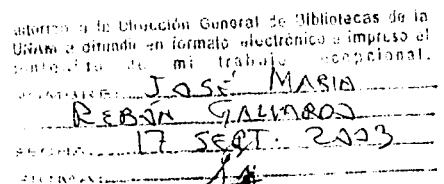 autorizo a la Dirección General de Bibliotecas de la
UNAM a difundir en formato electrónico e impreso el
contenido de mi trabajo recepcional.
NOMBRE: JOSÉ MARIA
REBÓN GALLARDO
FECHA: 17 SEPT. 2003
FIRMA: